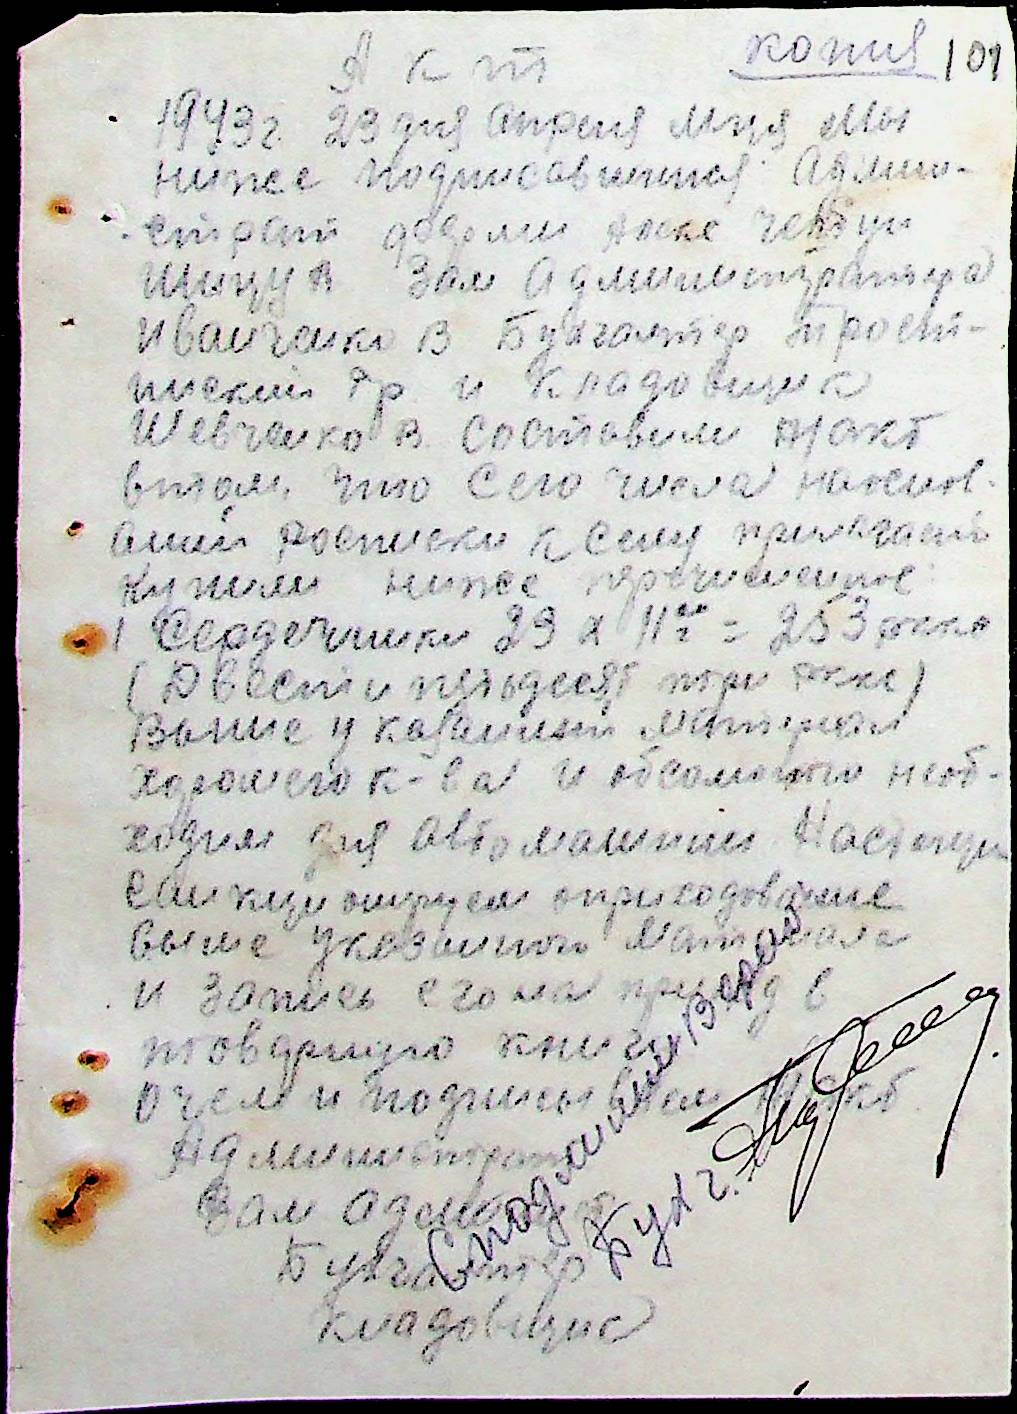 Акт копия 101
1943 г. 23 дня Апреля М-ца Мы
ниже подписавшиеся Админи-
страт
Зам Администратора
Иванченко В Бухгалтер
Гр и Кладовщик
Шевченко В. составили акт
втом, что Сего числа на основ-
ании росписки к сему прилагаем
купили ниже перечисленное
1 Сердечники 23 х 11 = 253
(Двести пятьдесят три)
Выше указанный материал
хорошего к-ва и абсолютно необ-
ходим для автомашин. Настоящи
санкционируем оприходование
выше указанного материала
и запись его на приход в
товарную книгу
О чем и подписываем акт.
Администрат
Зам админист
Бухгалтер
Кладовщик
С подлинным верно
Бухг.